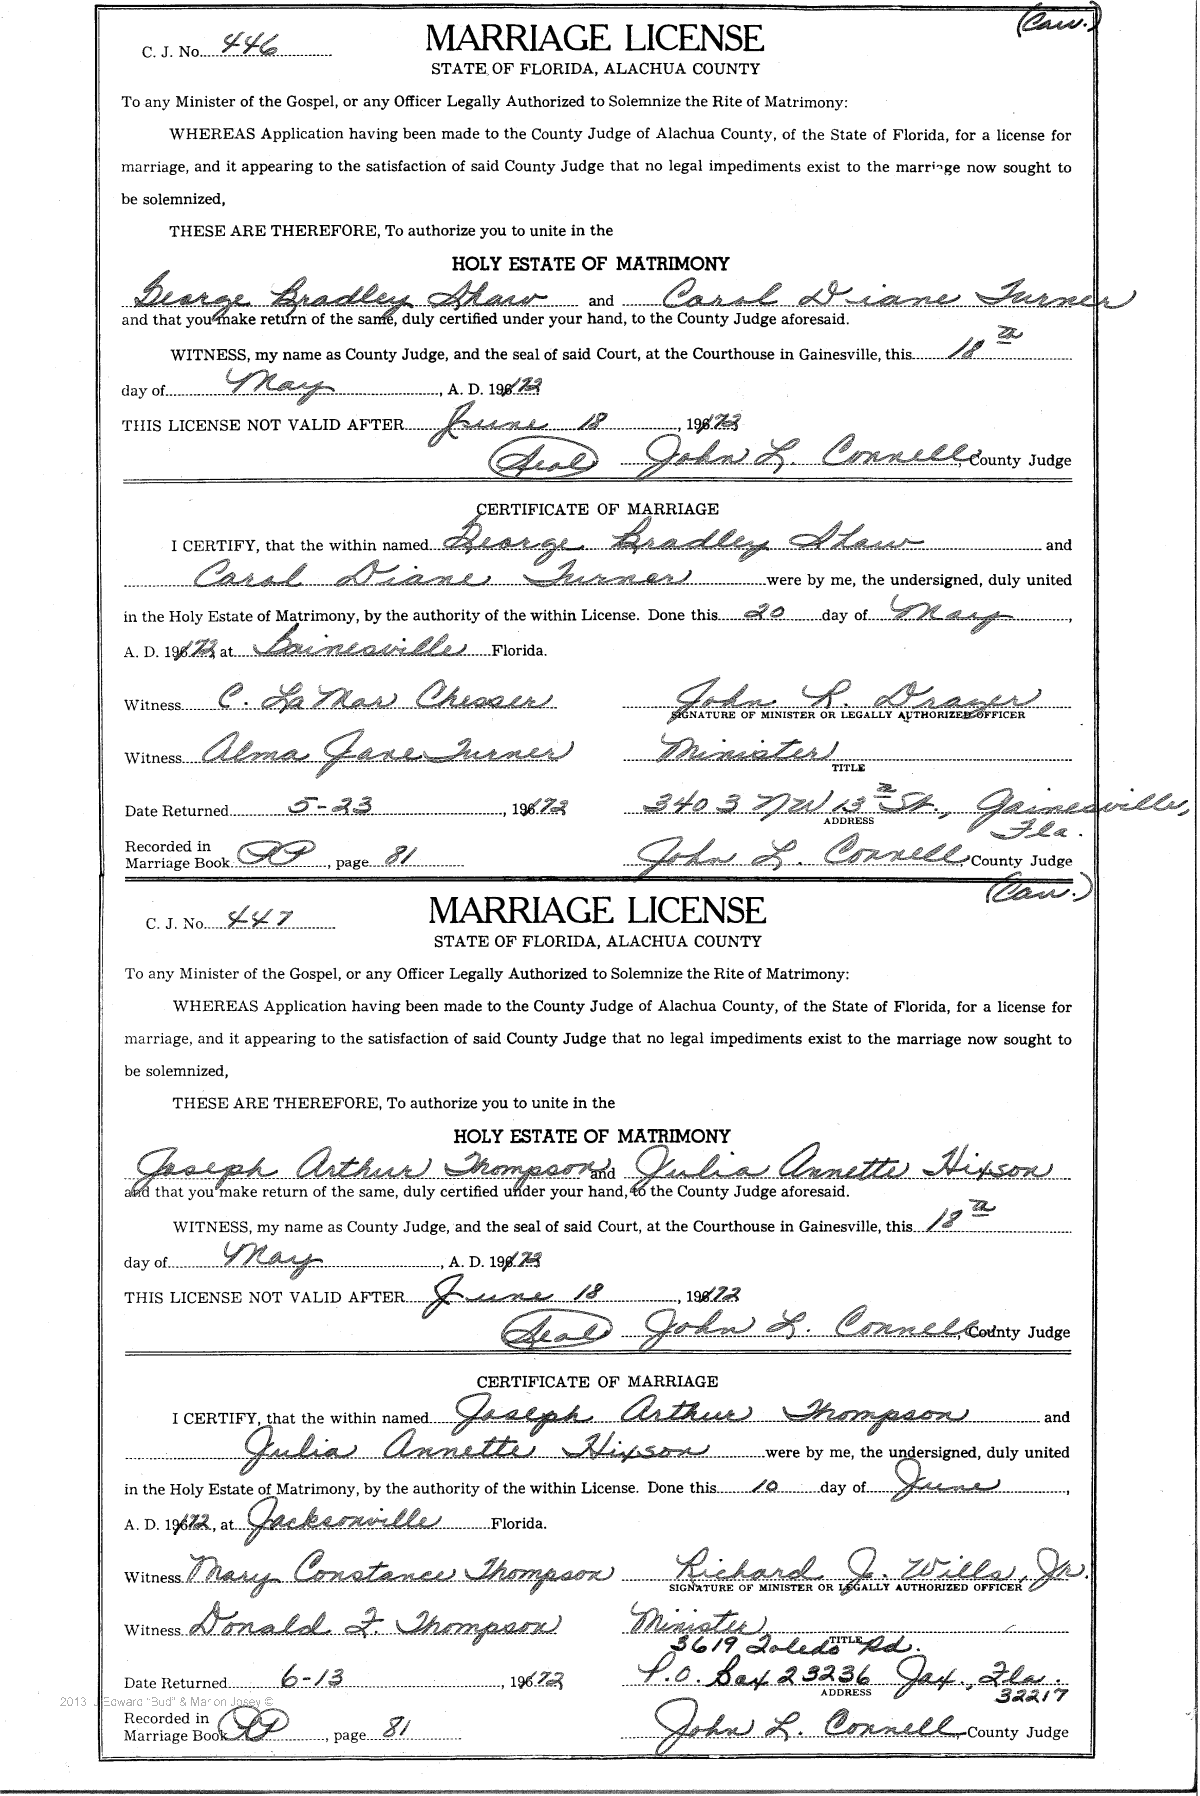 (Caw.)
C. J. No. 446 MARRIAGE LICENSE
STATE OF FLORIDA, ALACHUA COUNTY
To any Minister of the Gospel, or any Officer Legally Authorized to Solemnize the Rite of Matrimony:
WHEREAS Application having been made to the County Judge of Alachua County, of the State of Florida, for a license for
marriage, and it appearing to the satisfaction of said County Judge that no legal impediments exist to the marriage now sought to
be solemnized,
THESE ARE THEREFORE, To authorize you to unite in the
HOLY ESTATE OF MATRIMONY
George Bradley Shaw and Carol Diane Turner
and that you make return of the same, duly certified under your hand, to the County Judge aforesaid.
WITNESS, my name as County Judge, and the seal of said Court, at the Courthouse in Gainesville, this 18th
day of May, A. D. 1972
THIS LICENSE NOT VALID AFTER June 18, 1972
(Seal) John L. Connell, County Judge
CERTIFICATE OF MARRIAGE
I CERTIFY, that the within named George Bradley Shaw and
Carol Diane Turner were by me, the undersigned, duly united
in the Holy Estate of Matrimony, by the authority of the within License. Done this 20 day of May,
A. D. 1972, at Gainesville Florida.
Witness C. LaMar Chesser John R. Drazer
SIGNATURE OF MINISTER OR LEGALLY AUTHORIZED OFFICER
Witness Alma Jane Turner Minister
TITLE
Date Returned 5-23, 1972 3403 NW 13th St., Gainesville, Fla.
ADDRESS
Recorded in
Marriage Book PP, page 81 John L. Connell, County Judge
(Caw.)
C. J. No. 447 MARRIAGE LICENSE
STATE OF FLORIDA, ALACHUA COUNTY
To any Minister of the Gospel, or any Officer Legally Authorized to Solemnize the Rite of Matrimony:
WHEREAS Application having been made to the County Judge of Alachua County, of the State of Florida, for a license for
marriage, and it appearing to the satisfaction of said County Judge that no legal impediments exist to the marriage now sought to
be solemnized,
THESE ARE THEREFORE, To authorize you to unite in the
HOLY ESTATE OF MATRIMONY
Joseph Arthur Thompson and Julia Annette Hixson
and that you make return of the same, duly certified under your hand, to the County Judge aforesaid.
WITNESS, my name as County Judge, and the seal of said Court, at the Courthouse in Gainesville, this 18th
day of May, A. D. 1972
THIS LICENSE NOT VALID AFTER June 18, 1972
(Seal) John L. Connell, County Judge
CERTIFICATE OF MARRIAGE
I CERTIFY, that the within named Joseph Arthur Thompson and
Julia Annette Hixson were by me, the undersigned, duly united
in the Holy Estate of Matrimony, by the authority of the within License. Done this 10 day of June,
A. D. 1972, at Jacksonville Florida.
Witness Mary Constance Thompson Richard J. Wills, Jr.
SIGNATURE OF MINISTER OR LEGALLY AUTHORIZED OFFICER
Witness Donald F. Thompson Minister
TITLE
3619 Toledo Rd.
Date Returned 6-13, 1972 P.O. Box 23236 Jax., Fla. 32217
ADDRESS
2013 J Edward "Bud" & Marion Josey ©
Recorded in
Marriage Book PP, page 81 John L. Connell, County Judge